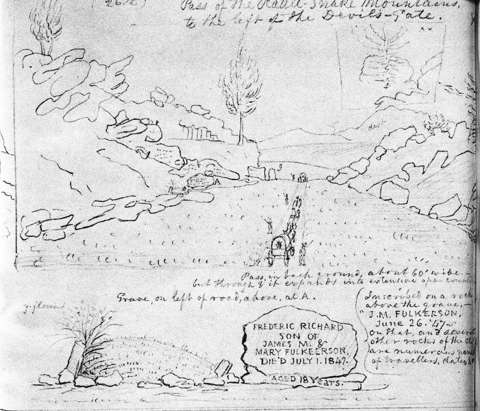 Pass of the Rattle-Snake Mountains,
to the left of the Devils-Gate.
A
Pass, on each ground, about 60 ft wide
but through it expands into extensive open
Grave, on left of road, above, at A.
Inscribed on a rock
above the grave,
J.M. FULKERSON,
June 26. '47
on that, and
other rocks of the
are numerous
of travellers, dates &c
FREDERIC RICHARD
SON OF
JAMES M. &
MARY FULKERSON,
DIE'D JULY 1. 1847.
AGED 18 Years.